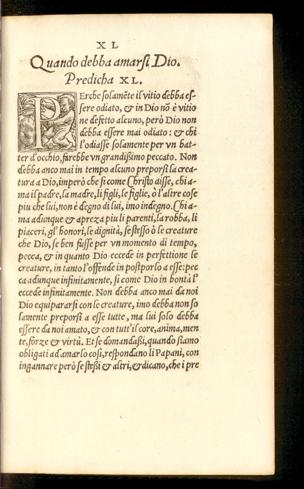 XL
Quando debba amarsi Dio.
Predicha XL.
PErche solamẽte il vitio debba es-
sere odiato, & in Dio nõ è vitio
ne defetto alcuno, però Dio non
debba essere mai odiato: & chi
l'odiasse solamente per vn bat-
ter d'occhio, farebbe vn grandißimo peccato. Non
debba anco mai in tempo alcuno preporsi la crea-
tura a Dio, imperò che si come Christo disse, chi a-
ma il padre, la madre, li figli, le figlie, ò l'altre cose
piu che lui, non è degno di lui, imo indegno. Chi a-
ma adunque & apreza piu li parenti, la robba, li
piaceri, gl'honori, le dignità, se stesso ò le creature
che Dio, se ben fusse per vn momento di tempo,
pecca, & in quanto Dio eccede in perfettione le
creature, in tanto l'offende in postporlo a esse: pec
ca adunque infinitamente, si come Dio in bontà l'
eccede infinitamente. Non debba anco mai da noi
Dio equipararsi con le creature, imo debba non so
lamente preporsi a esse tutte, ma lui solo debba
essere da noi amato, & con tutt'il core, anima, men
te, forze & virtù. Et se domandaßi, quando siamo
obligati ad amarlo cosi, respondano li Papani, con
ingannare però se steßi & altri, & dicano, che i pre